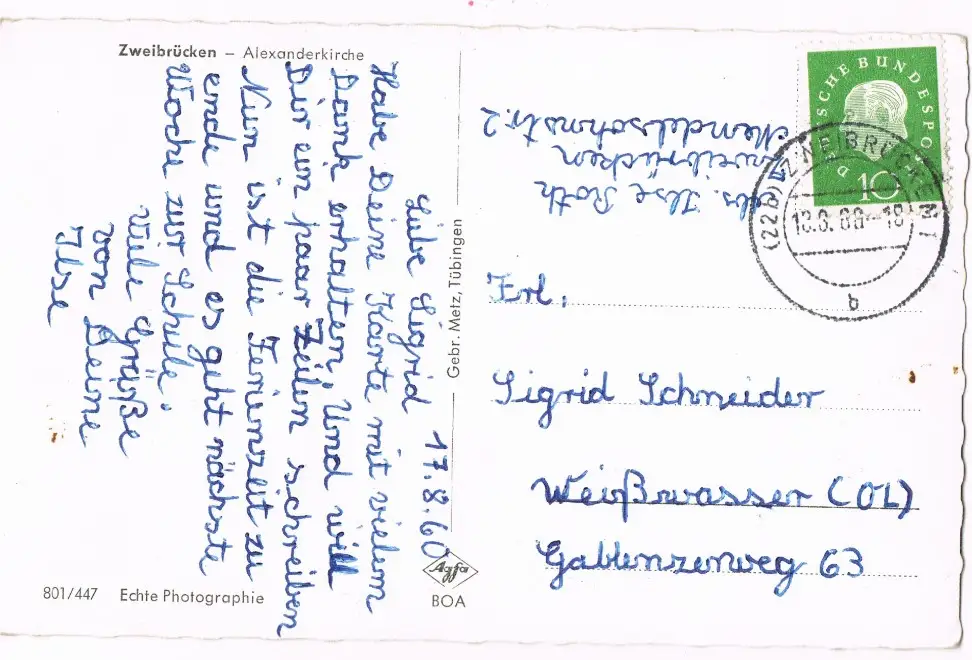 Zweibrücken – Alexanderkirche
Liebe Sigrid 17.8.60
Habe Deine Karte mit vielem
Dank erhalten. Und will
Dir ein paar Zeilen schreiben
Nun ist die Ferienzeit zu
ende und es geht nächste
Woche zur Schule.
Viele Grüße
von Deine
Ilse
801/447 Echte Photographie
Gebr. Metz, Tübingen
Agfa
BOA
Abs. Ilse Roth
Zweibrücken
Mendelsohnstr. 2
DEUTSCHE BUNDESPOST
10
(22b) ZWEIBRÜCKEN 1
b
Frl.
Sigrid Schneider
Weißwasser (OL)
Gablenzerweg 63